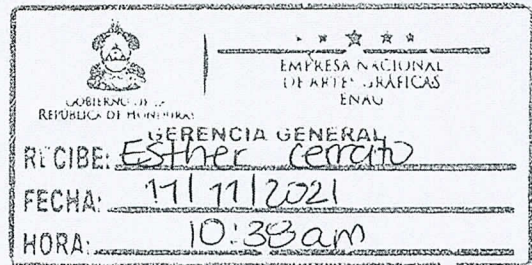 GOBIERNO DE LA
REPÚBLICA DE HONDURAS
EMPRESA NACIONAL
DE ARTES GRÁFICAS
ENAG
GERENCIA GENERAL
RECIBE: Esther cerrato
FECHA: 11/11/2021
HORA: 10:38 am